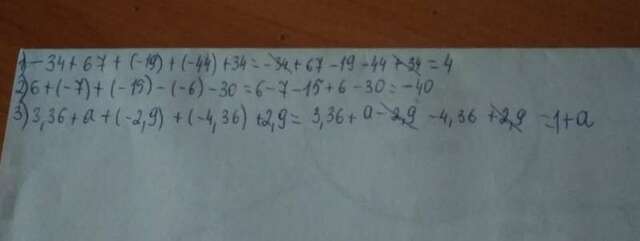 1) -34+67+(-19)+(-44)+34=-34+67-19-44+34=4
2) 6+(-7)+(-15)-(-6)-30=6-7-15+6-30=-40
3) 3,36+a+(-2,9)+(-4,36)+2,9=3,36+a-2,9-4,36+2,9=1+a